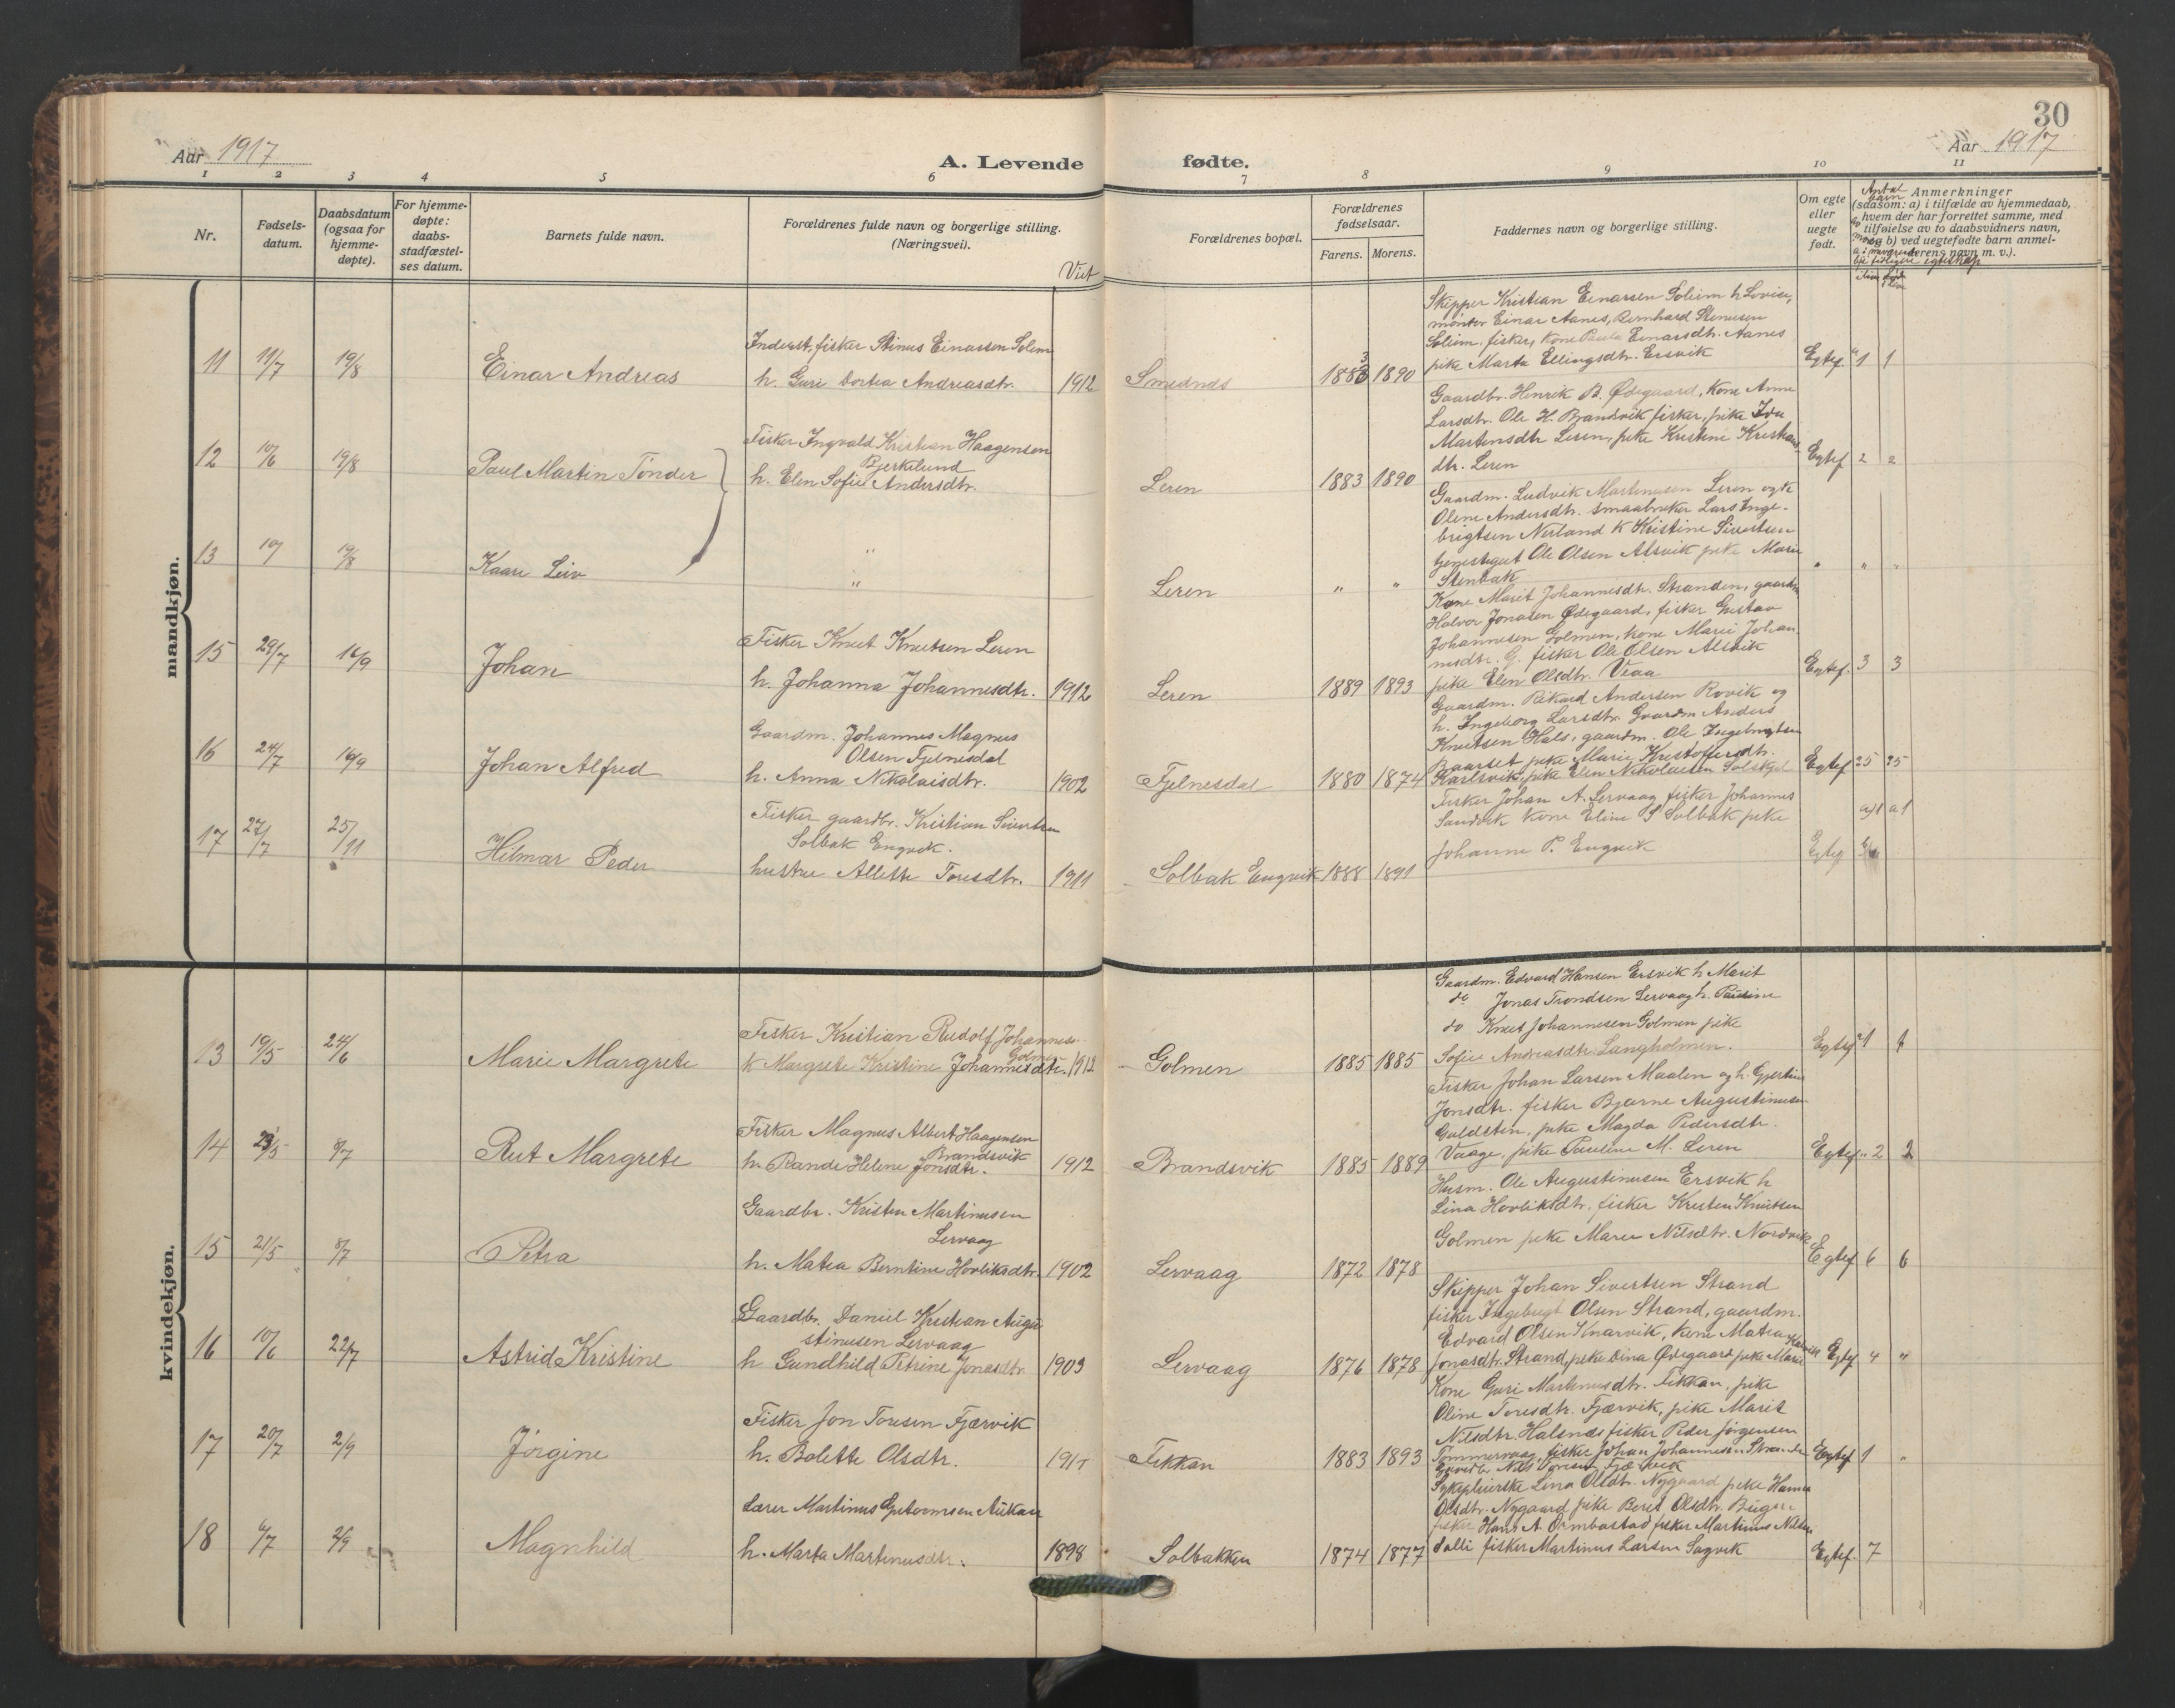 30
Aar 1917
A. Levende fødte.
Aar 1917
1 2 3 4 5 6 7 8 9 10 11
Nr.
Fødsels-
datum.
Daabsdatum
(ogsaa for
hjemme-
døpte).
For hjemme-
døpte:
daabs-
stadfæstel-
ses datum.
Barnets fulde navn.
Forældrenes fulde navn og borgerlige stilling.
(Næringsvei).
Viet
Forældrenes bopæl.
Forældrenes
fødselsaar.
Farens. Morens.
Faddernes navn og borgerlige stilling.
Om egte
eller
uegte
født.
Antal
barn
Anmerkninger
(saasom: a) i tilfælde av hjemmedaab,
hvem der har forrettet samme, med
tilføielse av to daabsvidners navn,
og b) ved uegtefødte barn anmel-
derens navn m. v.).
egteskap
mandkjøn.
11 11/7 19/8 Einar Andreas
Inderst, fisker Stinus Einarsen Solem
h. Guri Dortea Andreasdtr. 1912
Smednes 1883 1890
Skipper Kristian Einarsen Soleim h Lovise,
Einar Aanes, Bernhard Stenusen
Soleim, fisker, kone Paula Einarsdtr. Aanes
pike Marta Ellingsdtr. Ersvik
Egtef. 1 1
12 10/6 19/8 Paul Martin Tönder
Fisker Ingvald Kristian Haagensen
Bjerkelund
h. Elen Sofie Andersdtr.
Leren 1883 1890
Gaardbr. Henrik B. Ødegaard, kone Anne
Larsdtr. Ole H. Brandvik fisker, pike Ida
Martinsdtr Leren, pike Kristine Kristians-
dtr. Leren
Egtef 2 2
13 10/ 19/8 Kaare Leiv
"
"
Leren " "
Gaardm. Ludvik Martinusen Leren og k
Oline Andersdtr. smaabruker Lars Inge-
brigtsen Nerland k Kristine Sivertsen
Ole Olsen Alsvik pike Marie
Stenbak
" " "
15 29/7 16/9 Johan
Fisker Knut Knutsen Leren
h. Johanna Johannesdtr. 1912
Leren 1889 1893
Kone Marit Johannesdtr. Stranden, gaardm
Halvor Jonasen Ødegaard, fisker Gustav
Johannesen Golmen, kone Marie Johan
nesdtr. G. fisker Ole Olsen Alsvik
pike Elen Olsdtr. Veaa
Egtef. 3 3
16 24/7 16/9 Johan Alfred
Gaardm. Johannes Magnus
Olsen Fjelnesdal
h. Anna Nikolaisdtr. 1902
Fjelnesdal 1880 1874
Gaardm. Rikard Andersen Rovik og
h. Ingeborg Larsdtr. Gaardm Anders
Knutsen Hals, gaardm. Ole Ingebrigtsen
Baarset pike Marie Kristoffersdtr.
Karlsvik, pike Elen Nikolaisen Solskjel
Egtef 5 5
17 27/7 25/11 Hilmar Peder
Fisker gaardbr. Kristian Sivertsen
Solbak Engvik.
hustru Allette Toresdtr. 1911
Solbak Engvik 1888 1891
Fisker Johan A. Lervaag fisker Johannes
Sandvik kone Eline S Solbak pike
Johanne P. Engvik
Egtef
a) 1 a 1
kvindekjøn.
13 19/5 24/6 Marie Margrete
Fisker Kristian Rudolf Johannes-
Golmen
k Margrete Kristine Johannesdtr. 1912
Golmen 1885 1885
Gaardm. Edvard Hansen Ersvik h Marit
do Jonas Trondsen Lervaag h. Pauline
do Knut Johannesen Golmen pike
Sofie Andreasdtr. Langholmen.
Egtef 1 1
14 23/5 8/7 Rut Margrete
Fisker Magnus Albert Haagensen
Brandsvik
h. Rande Helene Jonsdtr. 1912
Brandsvik 1885 1889
Fisker Johan Larsen Maalen og h. Gjertine
Jonsdtr. fisker Bjarne Augustinusen
Guldsten, pike Magda Pedersdtr.
Vaage, pike Pauline M. Leren
Egtef. 2 2
15 21/5 8/7 Petra
Gaardbr. Kristen Martinusen
Lervaag
h. Matea Berntine Hovliksdtr. 1902
Lervaag 1872 1878
Husm. Ole Augustinusen Ersvik h
Lina Hovliksdtr, fisker Kristen Knutsen
Golmen pike Maren Nilsdtr. Nordvik
Egtef 6 6
16 10/6 22/7 Astrid Kristine
Gaardbr. Daniel Kristian Augu
stinusen Lervaag
h Gundhild Petrine Jonasdtr 1903
Lervaag 1876 1878
Skipper Johan Sivertsen Strand
fisker Ingebrigt Olsen Strand, gaardm.
Edvard Olsen Knarvik, kone Matea
Jonasdtr. Strand, pike Dina Ødegaard pike Marie
Egtef 4 "
17 20/7 2/9 Jörgine
Fisker Jon Toresen Fjærvik
h. Bolette Olsdtr. 1917
Fikkan 1883 1893
Kone Guri Martinusdtr. Fikkan, pike
Oline Toresdtr. Fjærvik, pike Marit
Nilsdtr. Halsnes fisker Peder Jørgensen
Tømmervaag, fisker Johan Johannesen Strande
Gaardbr. Nils Toresen Fjærvik
Egtef 1 "
18 6/7 2/9 Magnhild
Lærer Martinus Aukan
h. Marta Martinusdtr. 1898
Solbakken 1874 1877
Sykepleierske Lina Olsdtr. Nygaard pike Hanna
Olsdtr. Nygaard pike Berit Olsdtr.
fisker Hans A. Ormbostad fisker Martinus Nilsen
Dalli fisker Martinus Larsen Sagvik
Egtef. 7